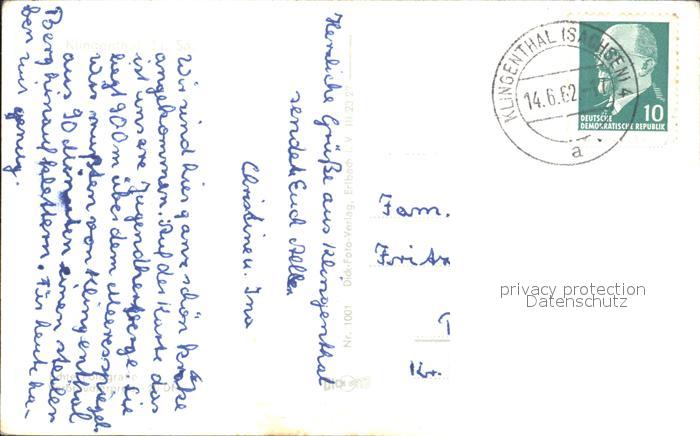 Herzliche Grüße aus Klingenthal
sendet Euch Allen
Christine u. Ina
Wir sind hier ganz schön k.o.
angekommen. Auf der Karte das
ist unsere Jugendherberge. Sie
liegt 900 m über dem Meeresspiegel.
Wir mußten von Klingenthal
aus 90 Minuten einen steilen
Berg hinaufklettern. Für heute ha-
ben wir genug.
Nr. 1001 Dick-Foto-Verlag, Erlbach
KLINGENTHAL (SACHSEN) 4
14.6.62
a
10
DEUTSCHE
DEMOKRATISCHE REPUBLIK
Fam.
Kr.
privacy protection
Datenschutz